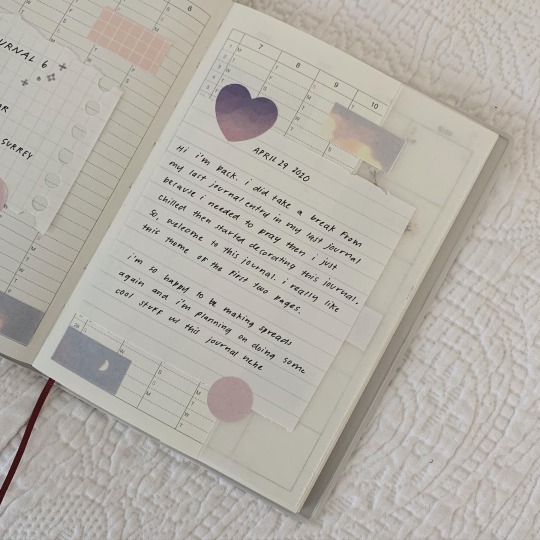 6
JOURNAL 6
SURREY
7
8
9
10
APRIL 29 2020
Hi i'm back. i did take a break from
my last journal entry in my last journal
because i needed to pray then i just
chilled then started decorating this journal.
So, welcome to this journal. i really like
this theme of the first two pages.
i'm so happy to be making spreads
again and i'm planning on doing some
cool stuff w/ this journal hehe